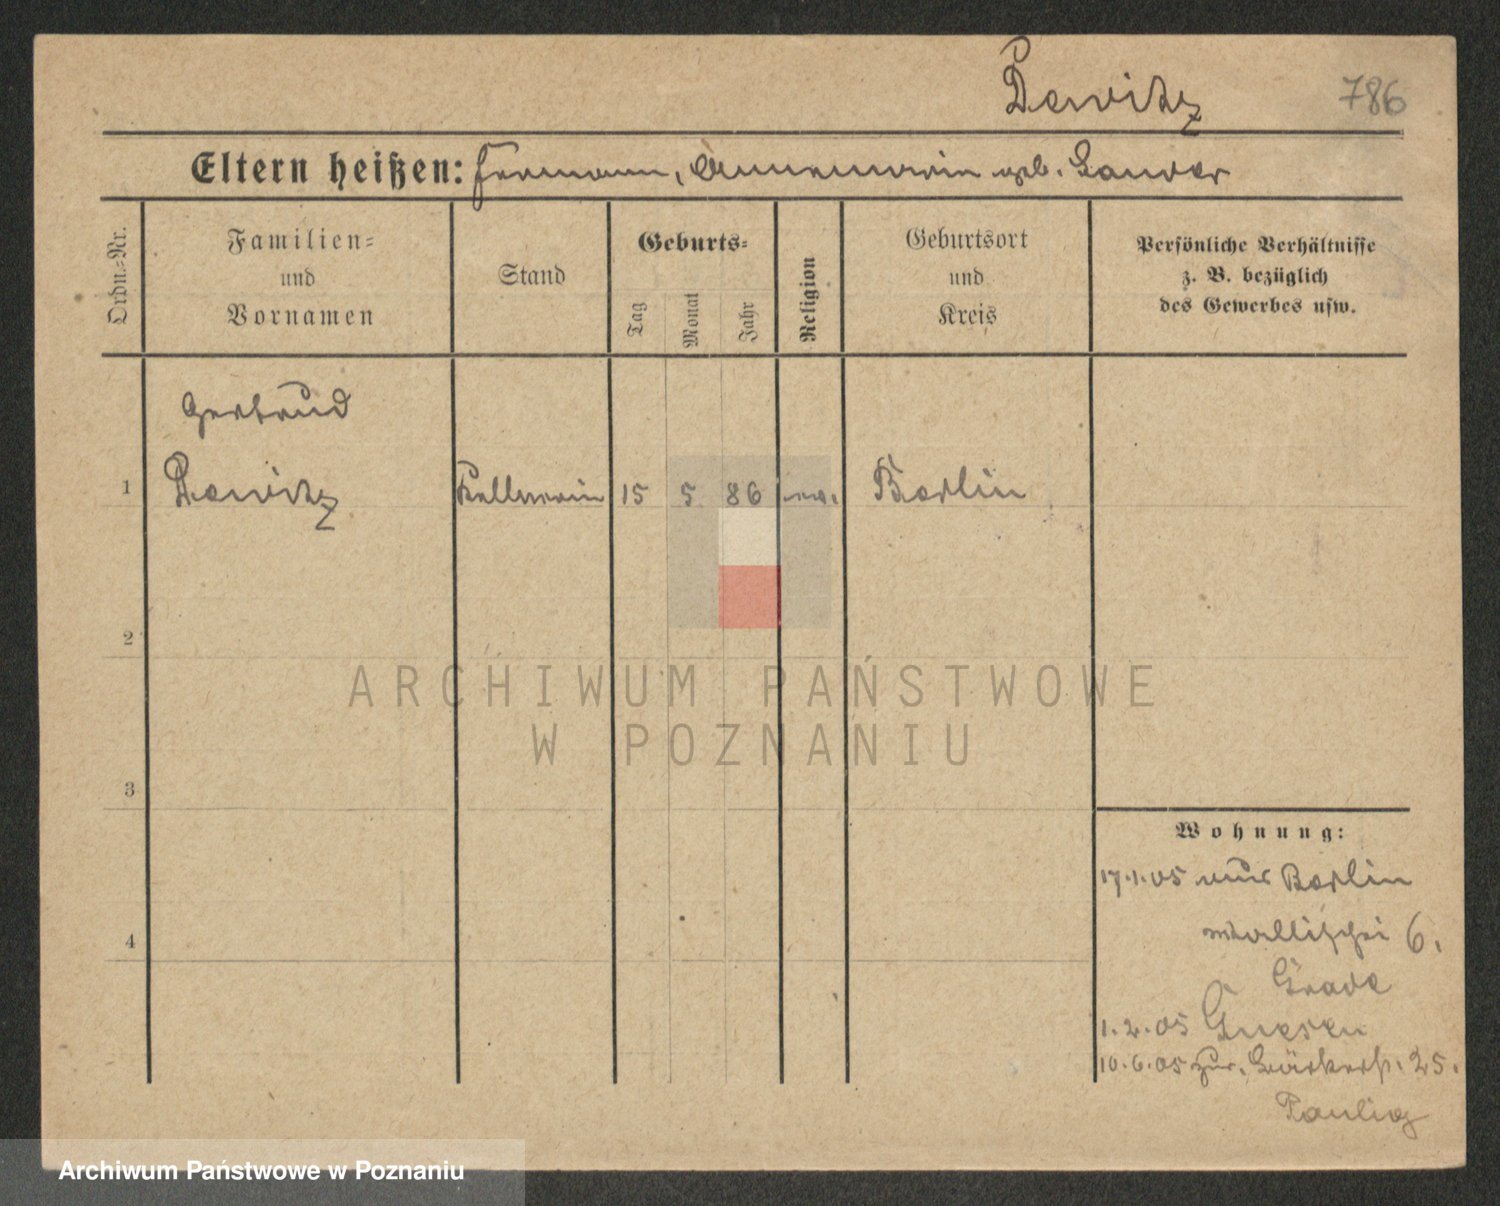 Dewitz 786
Eltern heißen: Hermann, Annemarie geb. Sander
Ordn.=Nr.
Familien=
und
Vornamen
Stand
Geburts=
Tag
Monat
Jahr
Religion
Geburtsort
und
Kreis
Persönliche Verhältnisse
z. B. bezüglich
des Gewerbes usw.
Gertrud
1 Dewitz Kellnerin 15 5 86 ev. Berlin
2
ARCHIWUM PAŃSTWOWE
W POZNANIU
3
Wohnung:
17.1.05 aus Berlin
Wallischei 6.
4
Grade
1.2.05 Gnesen
10.6.05 zur. Bäckerst. 25.
Paulig
Archiwum Państwowe w Poznaniu